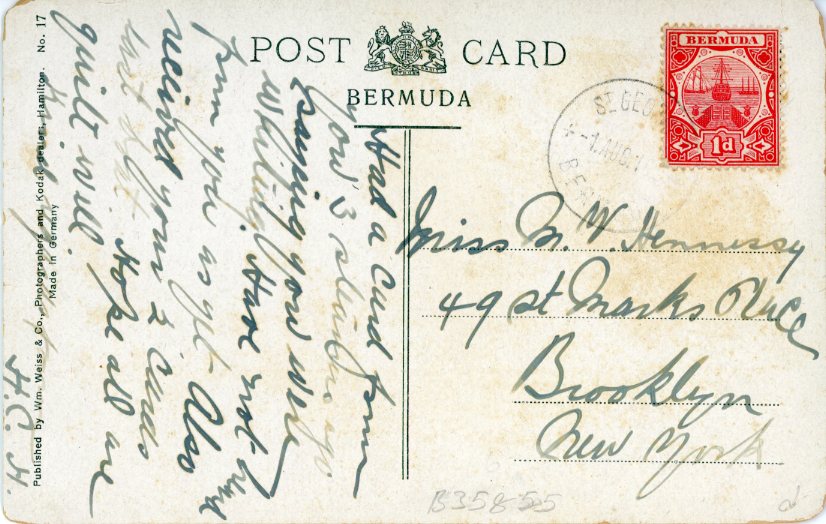 POST CARD
BERMUDA
Had a card from
you 3 steamers ago
saying you were
writing. Have not
from you as yet. Also
received your 2 cards
last night. Hope all are
quite well.
H. C. H.
Published by Wm. Weiss & Co., Photographers and Kodak dealers, Hamilton. No. 17
Made in Germany
BERMUDA
1d
ST. GEO
1 AUG
BER
Miss M. W. Hennessy
49 St Marks Place
Brooklyn
New York
B35855